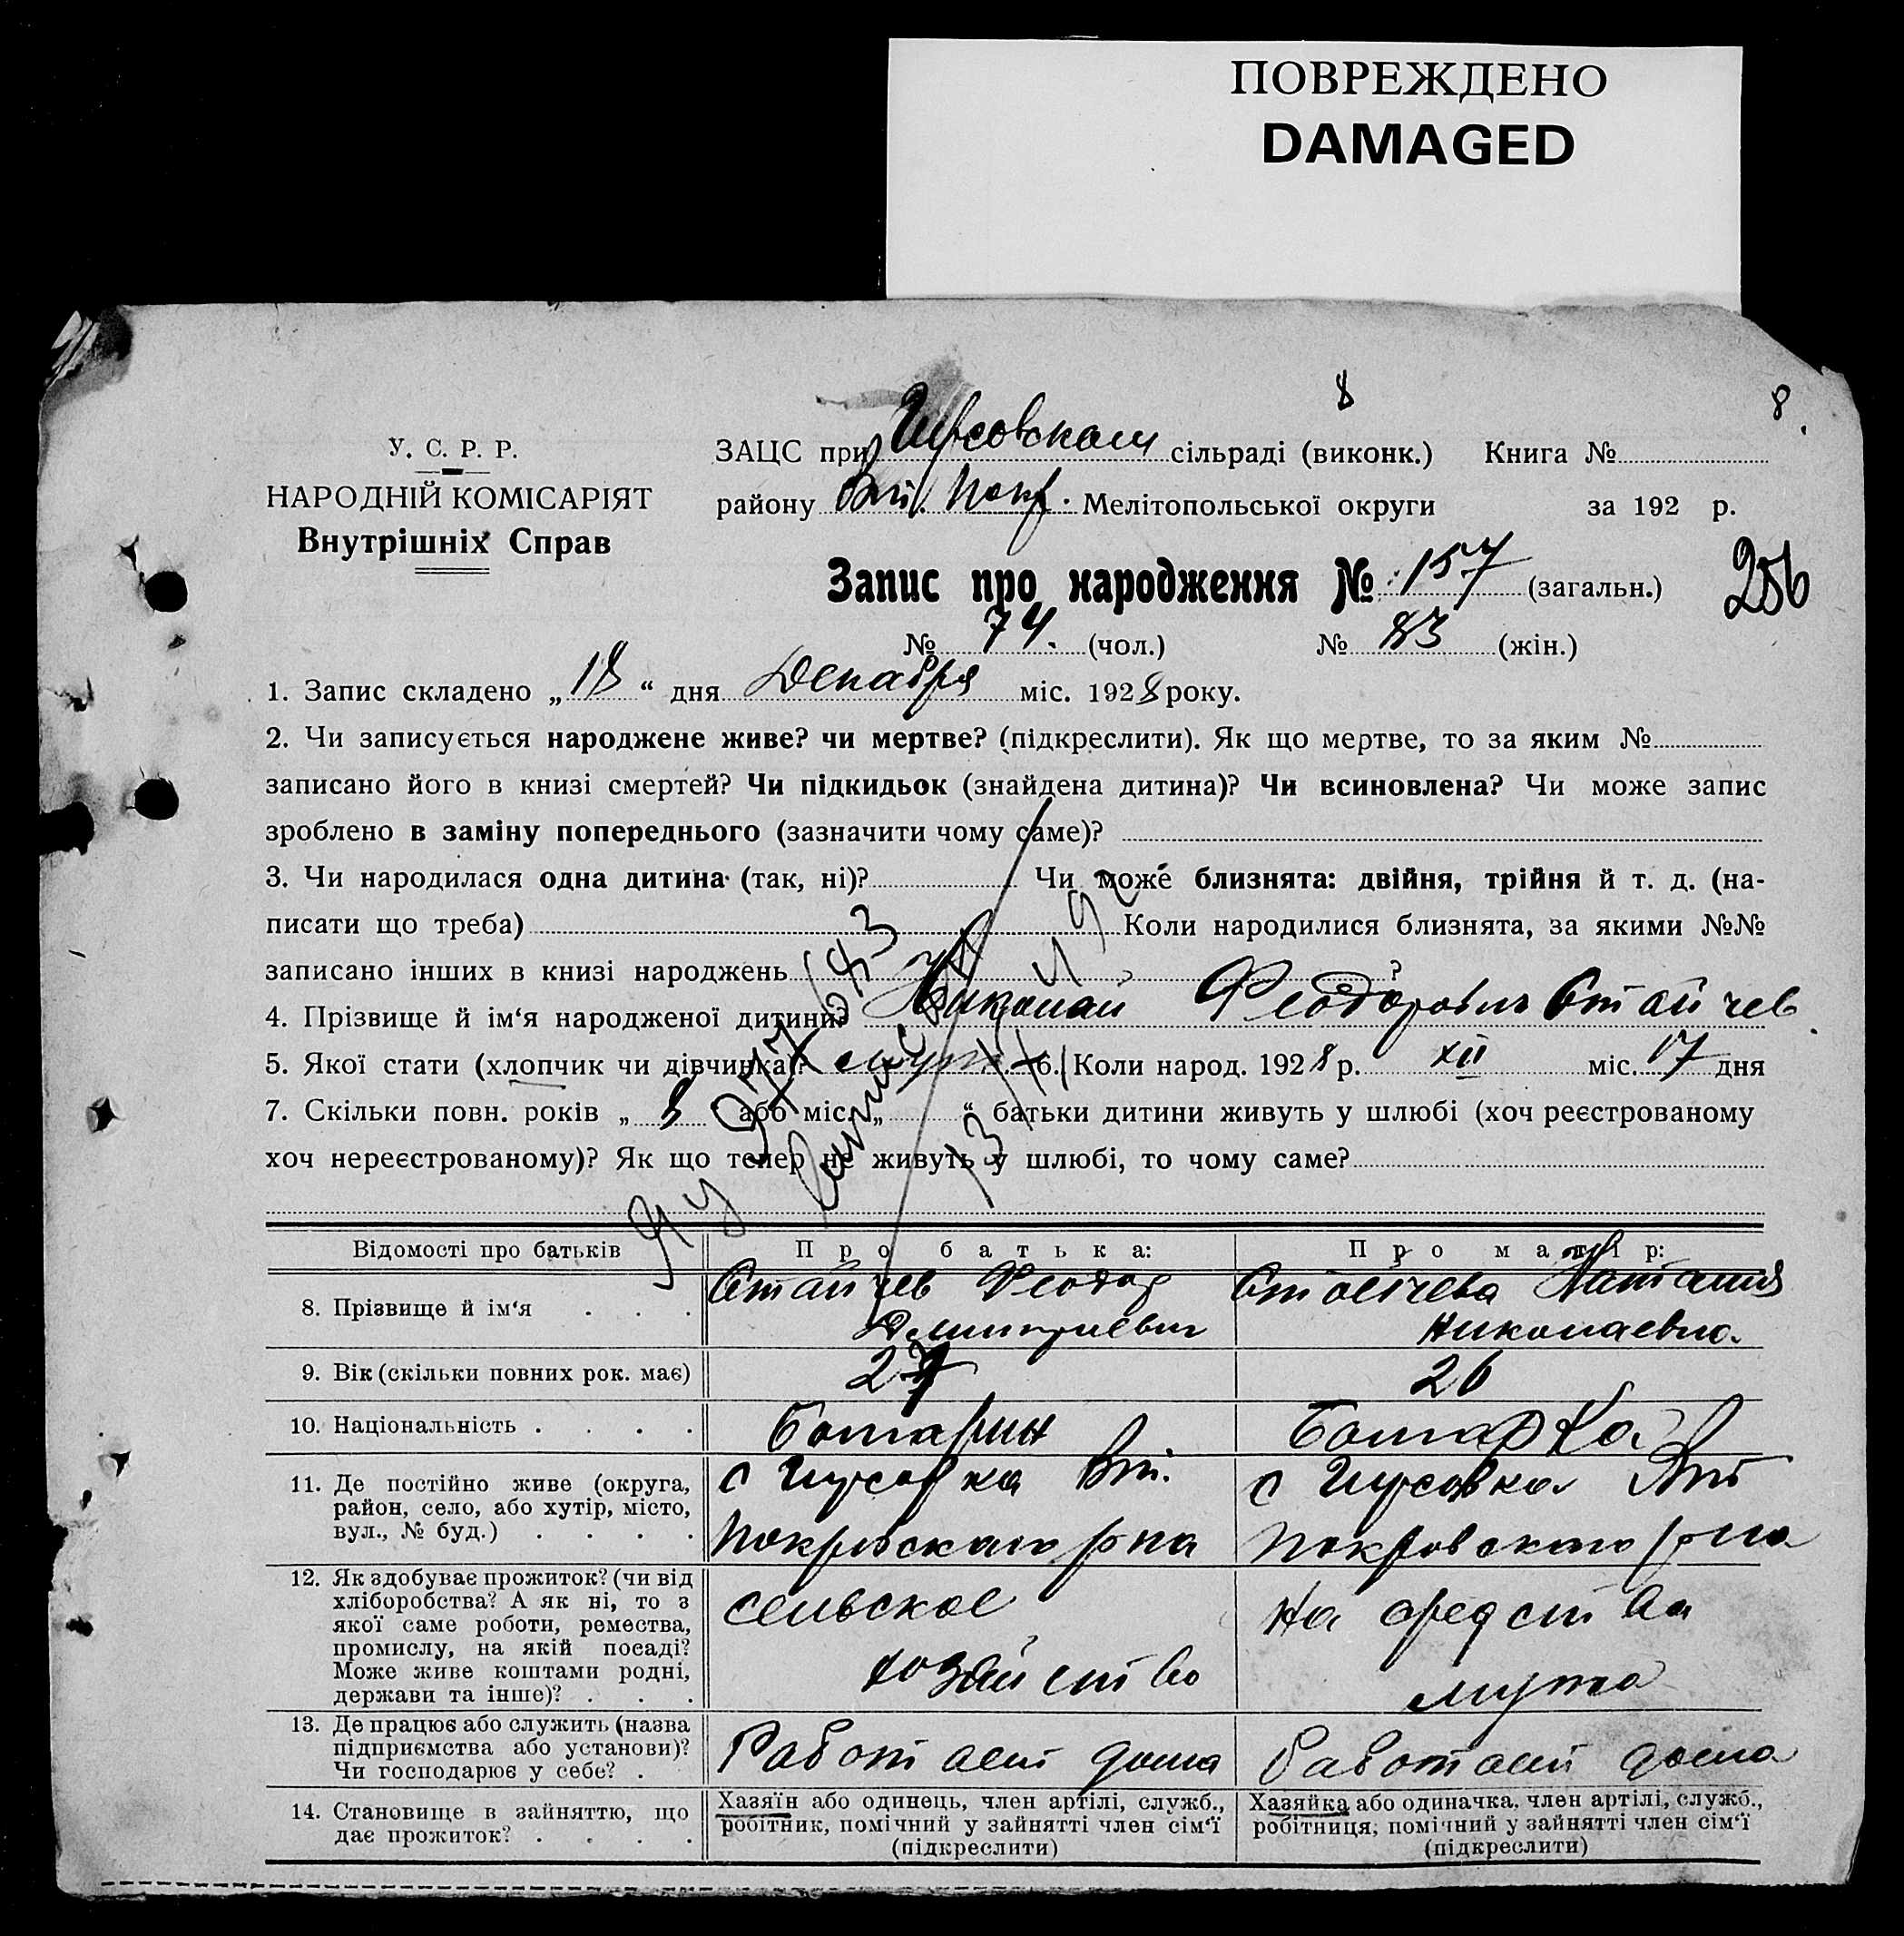 ПОВРЕЖДЕНО
DAMAGED
8
8.
У. С. Р. Р.
НАРОДНІЙ КОМІСАРІЯТ
Внутрішніх Справ
ЗАЦС при Гирсовском сільраді (виконк.) Книга №
району Покр. Мелітопольської округи за 192 р.
Запис про народження № 157 (загальн.)
256
№ 74. (чол.) № 83 (жін.)
1. Запис складено „18“ дня Декабря міс. 1928 року.
2. Чи записується народжене живе? чи мертве? (підкреслити). Як що мертве, то за яким №
записано його в книзі смертей? Чи підкидьок (знайдена дитина)? Чи всиновлена? Чи може запис
зроблено в заміну попереднього (зазначити чому саме)?
3. Чи народилася одна дитина (так, ні)? Чи може близнята: двійня, трійня й т. д. (на-
писати що треба) Коли народилися близнята, за якими №№
записано інших в книзі народжень ?
4. Прізвище й ім‘я народженої дитини? Николай Феодорович Стайчев
5. Якої стати (хлопчик чи дівчинка)? муж 6. Коли народ. 1928 р. XII міс. 17 дня
7. Скільки повн. років „8“ або міс. „ “ батьки дитини живуть у шлюбі (хоч реєстрованому
хоч нереєстрованому)? Як що тепер не живуть у шлюбі, то чому саме?
Відомості про батьків Про батька: Про матір:
8. Прізвище й ім‘я . . . Стайчев Феодор Стойчева Наталия
Дмитриевич Николаевна.
9. Вік (скільки повних рок. має) 27 26
10. Національність . . . . Болгарин Болгарка
11. Де постійно живе (округа, с Гирсовка с Гирсовка
район, село, або хутір, місто,
вул., № буд.) . . . . Покровского р на Покровского р на
12. Як здобуває прожиток? (чи від
хліборобства? А як ні, то з сельское на средства
якої саме роботи, ремества,
промислу, на якій посаді?
Може живе коштами родні, хозяйство мужа
держави та інше)? . . .
13. Де працює або служить (назва
підприємства або установи)? Работает дома Работает дома
Чи господарює у себе? .
14. Становище в зайняттю, що Хазяїн або одинець, член артілі, служб., Хазяйка або одиначка, член артілі, служб.,
дає прожиток? . . . . робітник, помічний у зайнятті член сім‘ї робітниця, помічний у зайнятті член сім‘ї
(підкреслити) (підкреслити)